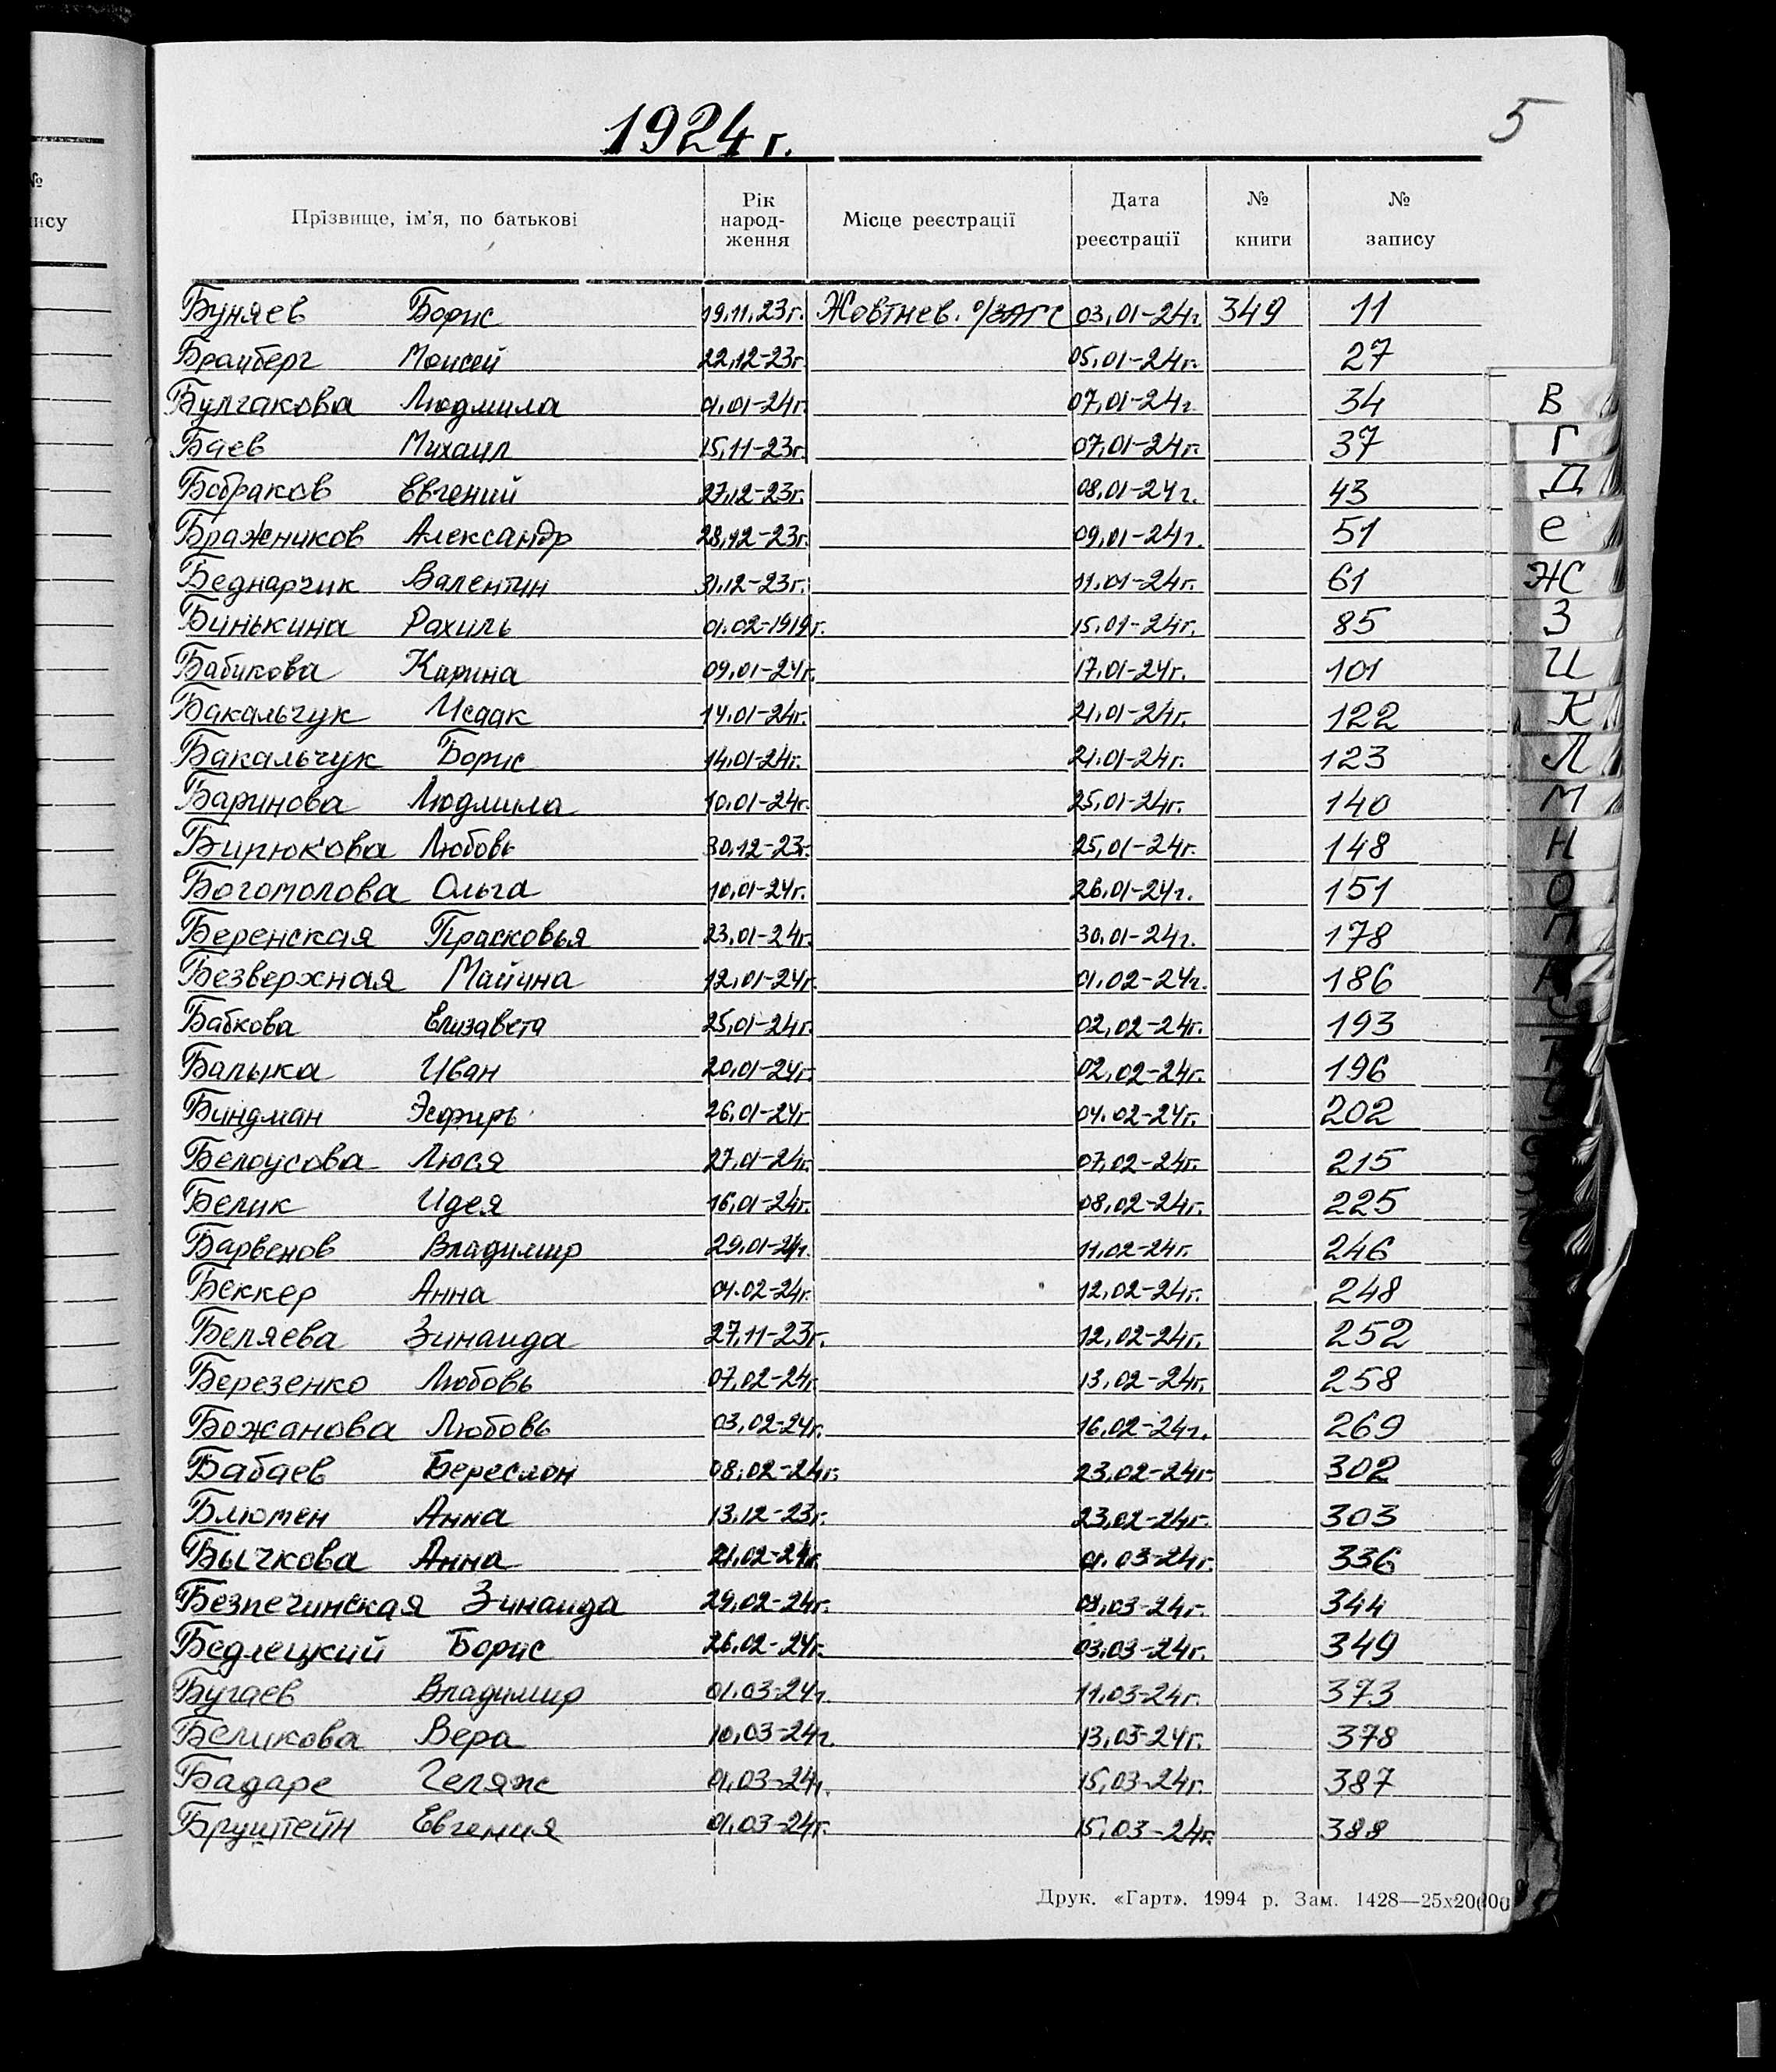 №
ису
1924 г.
5
Прізвище, ім'я, по батькові
Рік народ-ження
Місце реєстрації
Дата реєстрації
№ книги
№ запису
Буняев Борис 19.11.23г. Жовтнев. о/ЗАГС 03.01-24г. 349 11
Брамберг Моисей 22.12-23г. 05.01-24г. 27
Булгакова Людмила 01.01-24г. 07.01-24г. 34
Баев Михаил 15.11-23г. 07.01-24г. 37
Бобраков Евгений 27.12-23г. 08.01-24г. 43
Бражников Александр 28.12-23г. 09.01-24г. 51
Беднарчик Валентин 31.12-23г. 11.01-24г. 61
Бинькина Рахиль 01.02-1919г. 15.01-24г. 85
Бабикова Карина 09.01-24г. 17.01-24г. 101
Бакальчук Исаак 14.01-24г. 21.01-24г. 122
Бакальчук Борис 14.01-24г. 21.01-24г. 123
Баринова Людмила 10.01-24г. 25.01-24г. 140
Бирюкова Любовь 30.12-23г. 25.01-24г. 148
Богомолова Ольга 10.01-24г. 26.01-24г. 151
Беренская Прасковья 23.01-24г. 30.01-24г. 178
Безверхная Майина 12.01-24г. 01.02-24г. 186
Бабкова Елизавета 25.01-24г. 02.02-24г. 193
Балыка Иван 20.01-24г. 02.02-24г. 196
Биндман Эсфирь 26.01-24г. 04.02-24г. 202
Белоусова Люся 27.01-24г. 07.02-24г. 215
Белик Идея 16.01-24г. 08.02-24г. 225
Барвенов Владимир 29.01-24г. 11.02-24г. 246
Беккер Анна 04.02-24г. 12.02-24г. 248
Беляева Зинаида 27.11-23г. 12.02-24г. 252
Березенко Любовь 07.02-24г. 13.02-24г. 258
Божанова Любовь 03.02-24г. 16.02-24г. 269
Бабаев Береслон 08.02-24г. 23.02-24г. 302
Блюмен Анна 13.12-23г. 23.02-24г. 303
Бычкова Анна 21.02-24г. 01.03-24г. 336
Безпечинская Зинаида 29.02-24г. 03-24г. 344
Бедлецкий Борис 26.02-24г. 03.03-24г. 349
Бугаев Владимир 01.03-24г. 11.03-24г. 373
Беликова Вера 10.03-24г. 13.03-24г. 378
Бадаре Геляж 01.03-24г. 15.03-24г. 387
Бруштейн Евгения 01.03-24г. 15.03-24г. 388
Друк. «Гарт». 1994 р. Зам. 1428—25х20000
В
Г
Д
Е
Ж
З
И
К
Л
М
Н
О
П